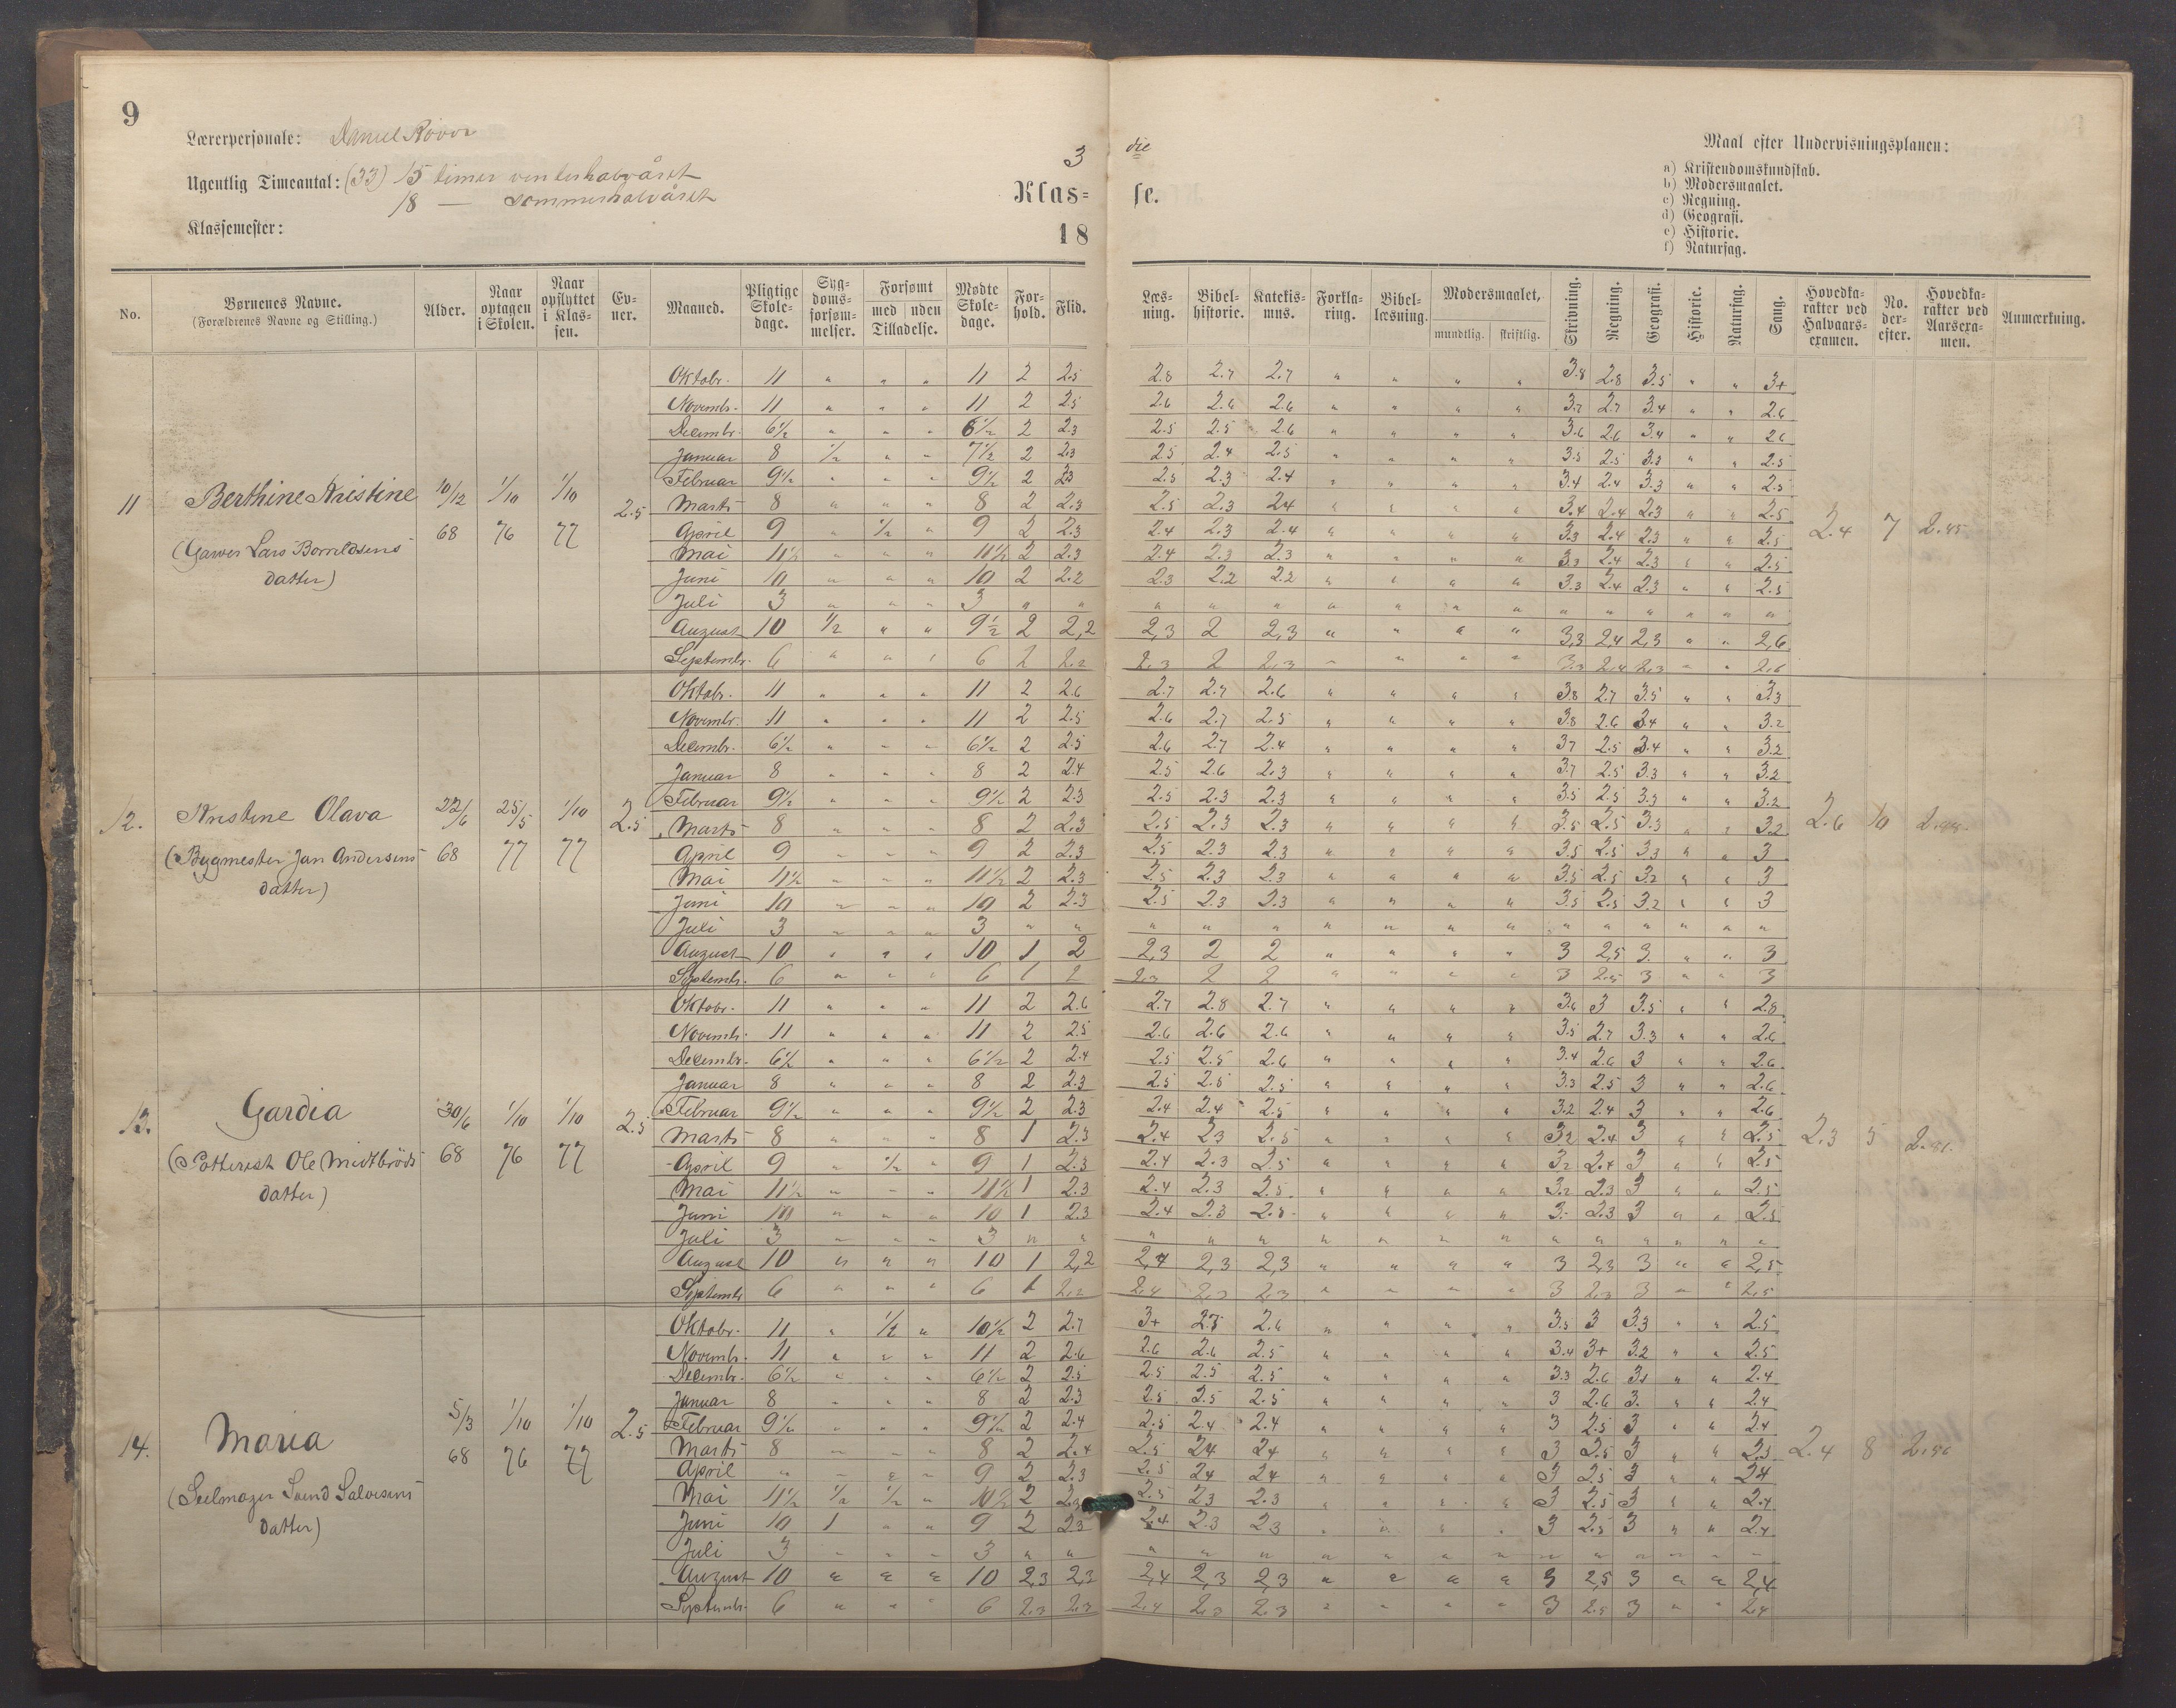 9
Lærerpersonale: Daniel
Ugentlig Timeantal: (33) 15 timer vinterhalvåret
18 — sommerhalvåret
Klassemester:
3 die
Klas= se.
18
Maal efter Undervisningsplanen:
a) Kristendomskundskab.
b) Modersmaalet.
c) Regning.
d) Geografi.
e) Historie.
f) Naturfag.
No. Børnenes Navne. (Forældrenes Navne og Stilling.) Alder. Naar optagen i Skolen. Naar opflyttet i Klas-sen. Ev-ner. Maaned. Pligtige Skole-dage. Syg-doms-forsøm-melser. Forsømt med uden Tilladelse. Mødte Skole-dage. For-hold. Flid. Læs-ning. Bibel-historie. Katekis-mus. Forkla-ring. Bibel-læsning. Modersmaalet, mundtlig. skriftlig. Skrivning. Regning. Geografi. Historie. Naturfag. Sang. Hovedka-rakter ved Halvaars-examen. No. der-efter. Hovedka-rakter ved Aarsexa-men. Anmærkning.
11 Berthine Kristine 10/12 68 1/10 76 1/10 77 2.5
(Garver Lars Borrildsens
datter)
Oktobr. 11 " " " 11 2 2.5 2.8 2.7 2.7 " " " " 3.8 2.8 3.5 " " 3+
Novembr. 11 " " " 11 2 2.5 2.6 2.6 2.6 " " " " 3.7 2.7 3.4 " " 2.6
Decembr. 6½ " " " 6½ 2 2.3 2.5 2.5 2.6 " " " " 3.6 2.6 3.4 " " 2.6
Januar 8 ½ " " 7½ 2 2.3 2.5 2.4 2.5 " " " " 3.5 2.5 3.3 " " 2.5
Februar 9½ " " " 9½ 2 2.3 2.5 2.3 2.4 " " " " 3.4 2.4 3.3 " " 2.5
Marts 8 " " " 8 2 2.3 2.5 2.3 2.4 " " " " 3.4 2.4 2.3 " " 2.5 2.4 7 2.45
April 9 " ½ " 9 2 2.3 2.4 2.3 2.4 " " " " 3.3 2.4 2.3 " " 2.5
Mai 11½ " " " 11½ 2 2.3 2.4 2.3 2.3 " " " " 3.3 2.4 2.3 " " 2.5
Juni 10 " " " 10 2 2.2 2.3 2.2 2.2 " " " " 3.3 2.4 2.3 " " 2.5
Juli 3 " " " 3 " " " " " " " " " " " " " " "
August 10 ½ " " 9½ 2 2,2 2,3 2 2,3 " " " " 3,3 2,4 2,3 " " 2,6
Septembr. 6 " " " 6 2 2.2 2.3 2 2,3 " " " " 3.3 2,4 2,3 " " 2,6
12. Kristine Olava 22/6 68 25/5 77 1/10 77 2.5
(Bygmester Jan Andersens
datter)
Oktobr. 11 " " " 11 2 2.6 2.7 2.7 2.6 " " " " 3.8 2.7 3.5 " " 3.3
Novembr. 11 " " " 11 2 2.5 2.6 2.7 2.5 " " " " 3.8 2.6 3.4 " " 3.2
Decembr. 6½ " " " 6½ 2 2.5 2.6 2.7 2.4 " " " " 3.7 2.5 3.4 " " 3.2
Januar 8 " " " 8 2 2.4 2.5 2.6 2.3 " " " " 3.7 2.5 3.3 " " 3.2
Februar 9½ " " " 9½ 2 2.3 2.5 2.3 2.3 " " " " 3.5 2.5 3.3 " " 3.2
Marts 8 " " " 8 2 2.3 2.5 2.3 2.3 " " " " 3.5 2.5 3.3 " " 3.2 2.6 10
April 9 " " " 9 2 2.3 2.5 2.3 2.3 " " " " 3.5 2.5 3.3 " " 3
Mai 11½ " " " 11½ 2 2.3 2.5 2.3 2.3 " " " " 3.5 2.5 3.2 " " 3
Juni 10 " " " 10 2 2.3 2.5 2.3 2.3 " " " " 3.5 2.5 3.2 " " 3
Juli 3 " " " 3 " " " " " " " " " " " " " " "
August 10 " " " 10 1 2 2,3 2 2 " " " " 3 2,5 3. " " 3
Septembr. 6 " " " 6 1 2 2.3 2 2 " " " " 3 2.5 3 " " 3
13. Gardia 30/6 68 1/10 76 1/10 77 2.5
(Potterist Ole Midtbröds
datter)
Oktobr. 11 " " " 11 2 2.6 2.7 2.8 2.7 " " " " 3.6 3 3.5 " " 2.8
Novembr. 11 " " " 11 2 2.5 2.6 2.6 2.6 " " " " 3.5 2.7 3.3 " " 2.6
Decembr. 6½ " " " 6½ 2 2.4 2.5 2.5 2.6 " " " " 3.4 2.6 3 " " 2.6
Januar 8 " " " 8 2 2.3 2.5 2.5 2.5 " " " " 3.3 2.5 3 " " 2.6
Februar 9½ " " " 9½ 2 2.3 2.4 2.4 2.5 " " " " 3.2 2.4 3 " " 2.6
Marts 8 " " " 8 1 2.3 2.4 2.3 2.5 " " " " 3.2 2.4 3 " " 2.5 2.3 5
April 9 " ½ " 9 1 2.3 2.4 2.3 2.5 " " " " 3.2 2.4 3 " " 2.5
Mai 11½ " " " 11½ 1 2.3 2.4 2.3 2.5 " " " " 3.2 2.3 3 " " 2.5
Juni 10 " " " 10 1 2.3 2.4 2.3 2.5 " " " " 3. 2.3 3 " " 2.5
Juli 3 " " " 3 " " " " " " " " " " " " " " "
August 10 " " " 10 1 2,2 2,4 2,3 2,3 " " " " 3 2,3 3 " " 2,5
Septembr 6 " " " 6 1 2,2 2,4 2,3 2,3 " " " " 3 2,3 3 " " 2,5
14. Maria 5/3 68 1/10 76 1/10 77 2.5
(Seilmager Svend Salvesens
datter)
Oktobr. 11 " ½ " 10½ 2 2.7 3+ 2.5 2.6 " " " " 3.5 3 3.3 " " 2.5
Novembr. 11 " " " 11 2 2.6 2.6 2.6 2.5 " " " " 3.4 3+ 3.2 " " 2.5
Decembr. 6½ " " " 6½ 2 2.5 2.5 2.5 2.5 " " " " 3.3 2.6 3.1 " " 2.4
Januar 8 " " " 8 2 2.3 2.5 2.5 2.5 " " " " 3 2.6 3. " " 2.4
Februar 9½ " " " 9½ 2 2.4 2.5 2.4 2.4 " " " " 3 2.5 3 " " 2.4
Marts 8 " " " 8 2 2.4 2.5 2.4 2.4 " " " " 3 2.5 3 " " 2.3 2.4 8 2.56
April " " " " 9 2 2.3 2.5 2.4 2.4 " " " " 3 2.5 3 " " 2.4
Mai 11½ ½ ½ " 10½ 2 2.3 2.5 2.3 2.3 " " " " 3 2.5 3 " " 2.4
Juni 10 1 " " 9 2 2.3 2.4 2.3 2.3 " " " " 3 2.5 3 " " 2.4
Juli 3 " " " 3 " " " " " " " " " " " " " " "
August 10 " " " 10 2,3 2,3 2,4 2,3 2,3 " " " " 3 2,5 3 " " 2,4
Septembr. 6 " " " 6 2.3 2.3 2.4 2.3 2.3 " " " " 3 2.5 3 " " 2,4